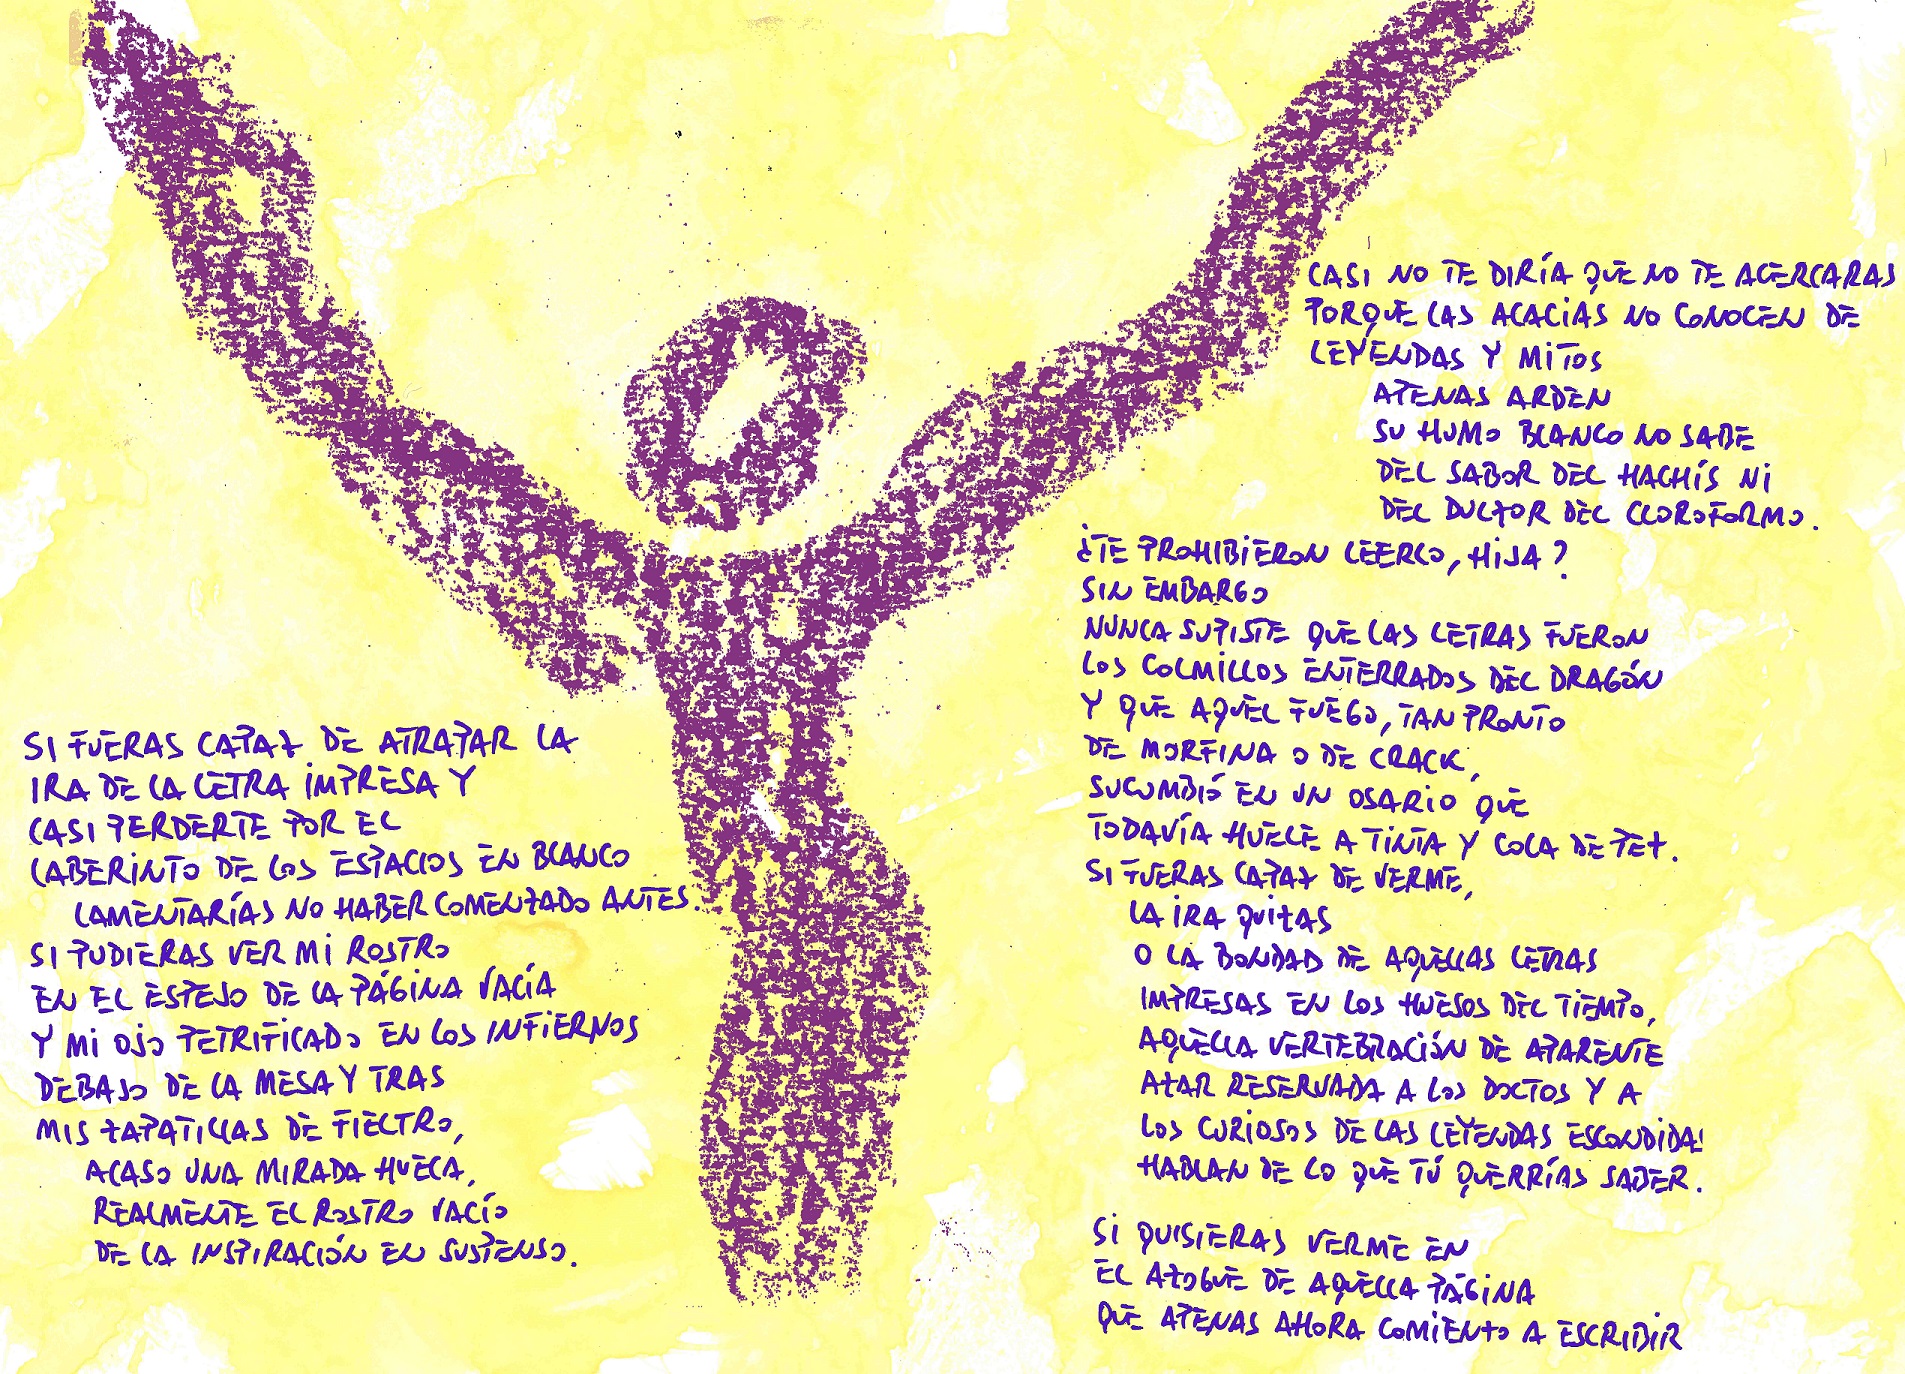 SI FUERAS CAPAZ DE ATRAPAR LA
IRA DE LA LETRA IMPRESA Y
CASI PERDERTE POR EL
LABERINTO DE LOS ESPACIOS EN BLANCO
LAMENTARÍAS NO HABER COMENZADO ANTES.
SI PUDIERAS VER MI ROSTRO
EN EL ESPEJO DE LA PÁGINA VACÍA
Y MI OJO PETRIFICADO EN LOS INFIERNOS
DEBAJO DE LA MESA Y TRAS
MIS ZAPATILLAS DE FIELTRO,
ACASO UNA MIRADA HUECA,
REALMENTE EL ROSTRO VACÍO
DE LA INSPIRACIÓN EN SUSPENSO.
CASI NO TE DIRÍA QUE NO TE ACERCARAS
PORQUE LAS ACACIAS NO CONOCEN DE
LEYENDAS Y MITOS
APENAS ARDEN
SU HUMO BLANCO NO SABE
DEL SABOR DEL HACHÍS NI
DEL DULZOR DEL CLOROFORMO.
¿TE PROHIBIERON LEERLO, HIJA?
SIN EMBARGO
NUNCA SUPISTE QUE LAS LETRAS FUERON
LOS COLMILLOS ENTERRADOS DEL DRAGÓN
Y QUE AQUEL FUEGO, TAN PRONTO
DE MORFINA O DE CRACK,
SUCUMBIÓ EN UN OSARIO QUE
TODAVÍA HUELE A TINTA Y COLA DE PEZ.
SI FUERAS CAPAZ DE VERME,
LA IRA QUIZÁS
O LA BONDAD DE AQUELLAS LETRAS
IMPRESAS EN LOS HUESOS DEL TIEMPO,
AQUELLA VERTEBRACIÓN DE APARENTE
AZAR RESERVADA A LOS DOCTOS Y A
LOS CURIOSOS DE LAS LEYENDAS ESCONDIDAS
HABLAN DE LO QUE TÚ QUERRÍAS SABER.
SI QUISIERAS VERME EN
EL AZOGUE DE AQUELLA PÁGINA
QUE APENAS AHORA COMIENZO A ESCRIBIR